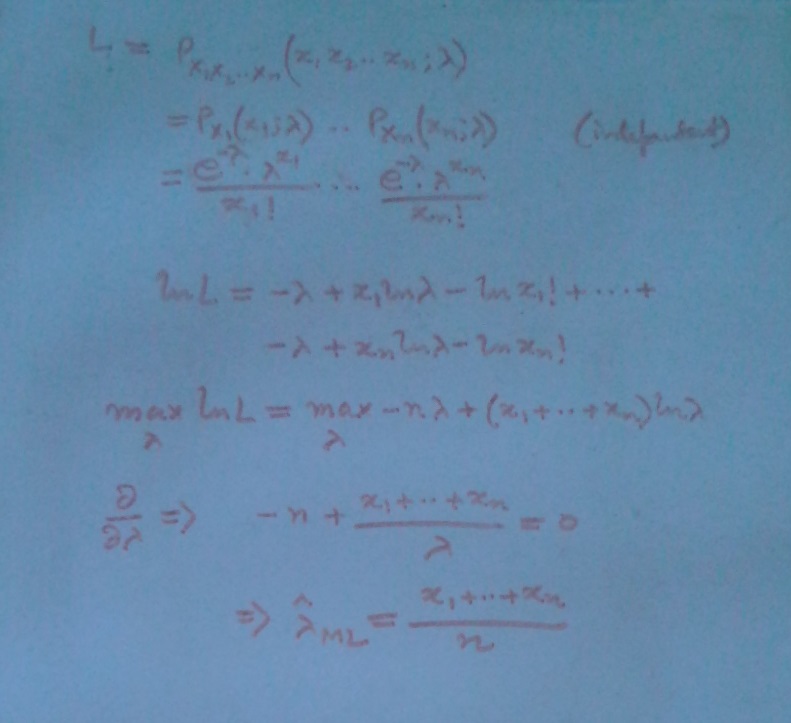 L = P_{X₁X₂..Xₙ}(x₁ x₂ .. xₙ; λ)
= P_{X₁}(x₁; λ) .. P_{Xₙ}(xₙ; λ) (independent)
= \frac{e^{-λ} · λ^{x₁}}{x₁!} ... \frac{e^{-λ} · λ^{xₙ}}{xₙ!}
ln L = -λ + x₁ ln λ - ln x₁! + ... +
-λ + xₙ ln λ - ln xₙ!
max_λ ln L = max_λ -nλ + (x₁ + .. + xₙ) ln λ
\frac{∂}{∂λ} ⇒ -n + \frac{x₁ + .. + xₙ}{λ} = 0
⇒ \hat{λ}_{ML} = \frac{x₁ + .. + xₙ}{n}